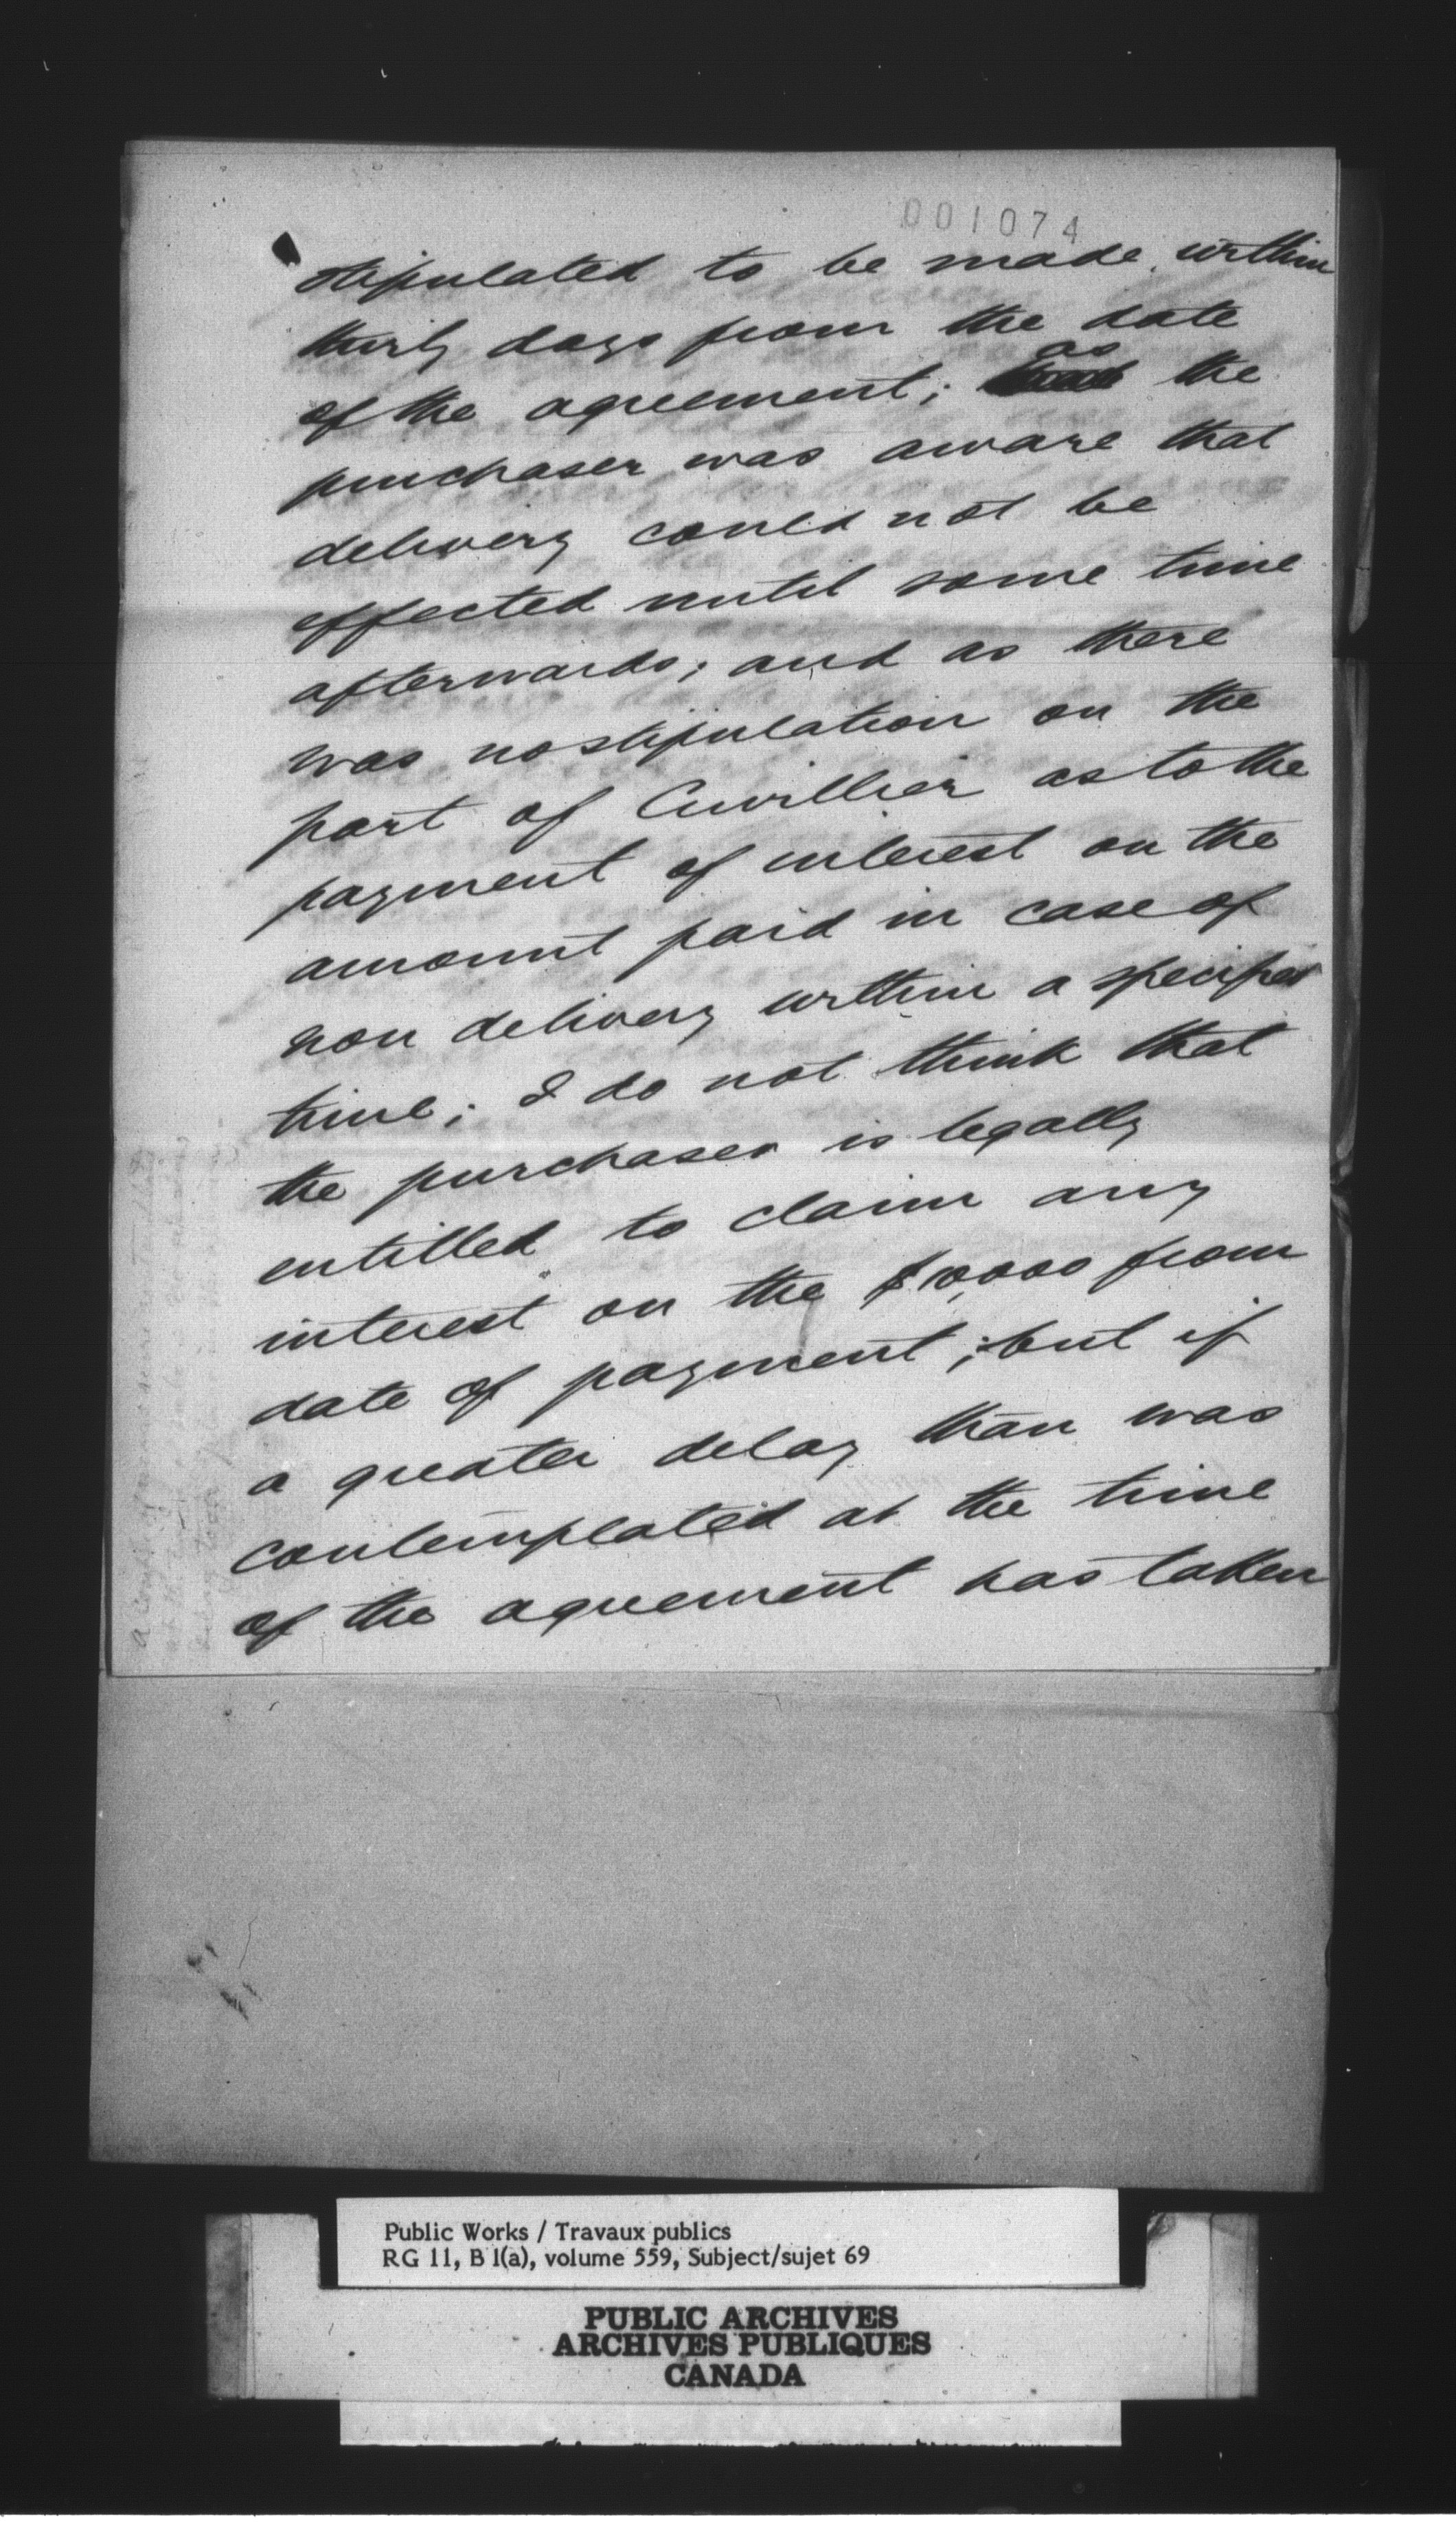 001074
stipulated to be made within
thirty days from the date
as
of the agreement; the
purchaser was aware that
delivery could not be
effected until some time
afterwards; and as there
was no stipulation on the
part of Cuvillier as to the
payment of interest on the
amount paid in case of
non delivery within a specified
time; I do not think that
the purchaser is legally
entitled to claim any
interest on the $10,000 from
date of payment; but if
a greater delay than was
contemplated at the time
of the agreement has taken
Public Works / Travaux publics
RG 11, B 1(a), volume 559, Subject/sujet 69
PUBLIC ARCHIVES
ARCHIVES PUBLIQUES
CANADA